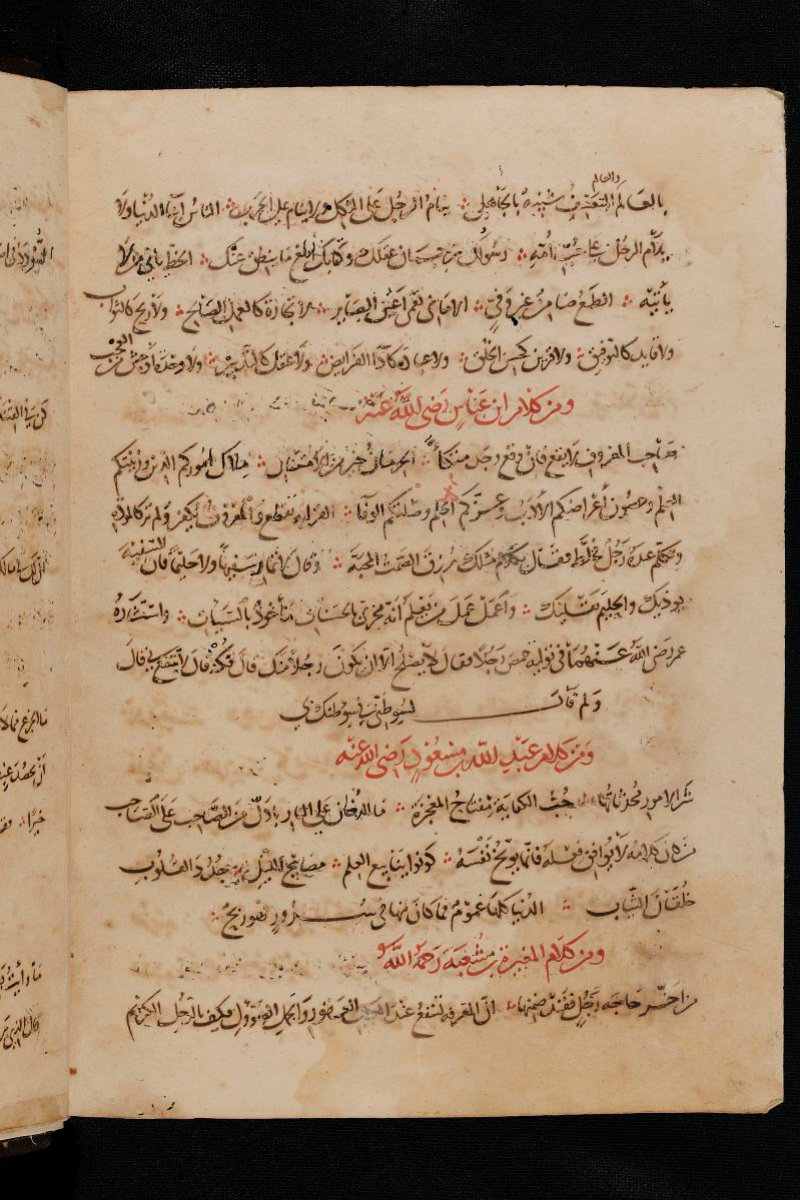 والعالم
بالعالم التحريف شبيه بالجاهل ؞ ينام الرجل على الثكل ولا ينام على الحرب ؞ الناس أبناء الدنيا ولا
يلام الرجل على حب أمه ؞ رسولك ترجمان عقلك وكتابك أبلغ ما ينطق عنك ؞ الحظ يأتي من لا
يأتيه ؞ الطمع ضامن غير وفي ؞ الأماني تعمي أعين البصاير ؞ لا تجارة كالعمل الصالح ؞ ولا ربح كالثواب
ولا قايد كالتوفيق ؞ ولا قرين كحسن الخلق ؞ ولا عبادة كأداء الفرايض ؞ ولا عقل كالتدبير ؞ ولا وحدة أوحش من العجب
ومن كلام ابن عباس رضي الله عنه
صاحب المعروف لا يقع فإن وقع وجد متكأ ؞ الحرمان خير من الامتنان ؞ ملاك أموركم الدين وزينتكم
العلم وحصون أعراضكم الأدب وعزكم الحلم وصلتكم الوفا ؞ القرابة تقطع والمعروف يكفر ولم تر كالمودة
وتكلم عنده رجل فخلط فقال بكلام مثلك رزق الصمت المحبة ؞ وقال لا تمار سفيها ولا حليما فإن السفيه
يوذيك والحليم يقليك ؞ واعمل عمل من يعلم أنه مجزي بالحسنات مأخوذ بالسيات ؞ واستشاره
عمر رضي الله عنهما في تولية حمص رجلا فقال لا يصلح إلا أن يكون رجلا منك قال فكنه قال لا تنتفع بي قال
ولم قال لسو ظني في سو ظنك بي
ومن كلام عبد الله بن مسعود رضي الله عنه
شر الأمور محدثاتها ؞ حب الكفاية مفتاح المعجزة ؞ ما الدخان على النار بأدل من الصاحب على الصاحب
من كان كلامه لا يوافق فعله فإنما يوبخ نفسه ؞ كونوا ينابيع العلم ؞ مصابيح الليل ؞ جدد القلوب
خلقان الثياب ؞ الدنيا كلها غموم فما كان منها في سرور فهو ربح ؞
ومن كلام المغيرة بن شعبة رحمه الله
من أخر حاجة رجل فقد ضمنها ؞ ان المعرفة لتنفع عند الكلب العقور والجمل الصؤول فكيف بالرجل الكريم